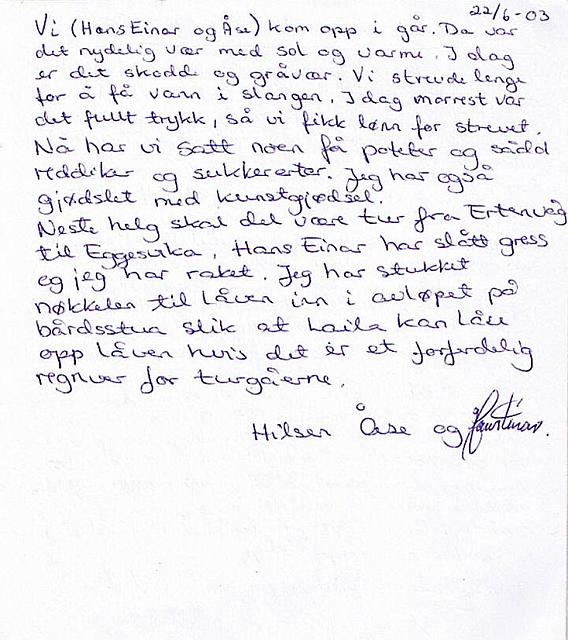 22/6-03
Vi (Hans Einar og Åse) kom opp i går. Da var
det nydelig vær med sol og varme. I dag
er det skodd og gråvær. Vi strevde lenge
for å få vann i slangen. I dag morrest var
det fullt trykk, så vi fikk lønn for strevet.
Nå har vi satt noen få poteter og sådd
reddiker og sukkererter. Jeg har også
gjødslet med kunstgjødsel.
Neste helg skal det være tur fra Ertenvåg
til Eggesvika, Hans Einar har slått gress
og jeg har raket. Jeg har stukket
nøkkelen til låven inn i avløpet på
bårdsstua slik at Laila kan låse
opp låven hvis det er et forferdelig
regnver for turgåerne.
Hilsen Åse og